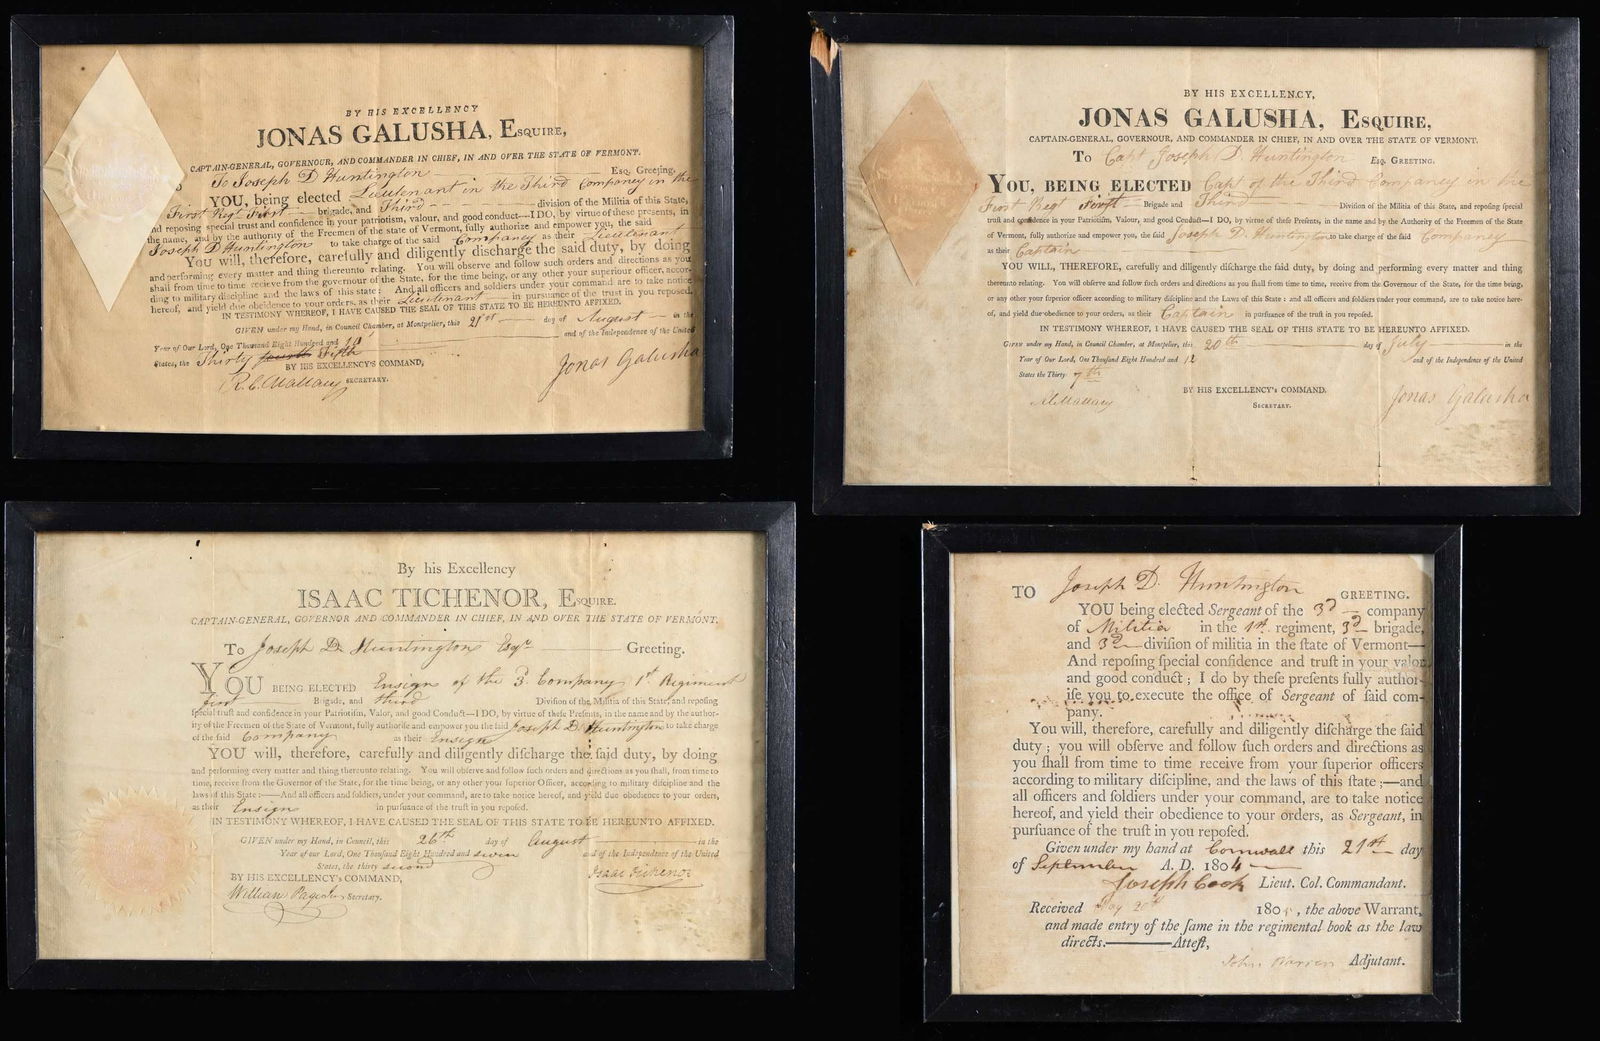 BY HIS EXCELLENCY
JONAS GALUSHA, ESQUIRE,
CAPTAIN-GENERAL, GOVERNOUR, AND COMMANDER IN CHIEF, IN AND OVER THE STATE OF VERMONT.
To Joseph D Huntington Esq. Greeting.
YOU, being elected Lieutenant in the Third Company in the
First Regt First brigade, and Third division of the Militia of this State,
and reposing special trust and confidence in your patriotism, valour, and good conduct—I DO, by virtue of these presents, in
the name, and by the authority of the Freemen of the state of Vermont, fully authorize and empower you, the said
Joseph D Huntington to take charge of the said Company as their Lieutenant
You will, therefore, carefully and diligently discharge the said duty, by doing
and performing every matter and thing thereunto relating. You will observe and follow such orders and directions as you
shall from time to time recieve from the governour of the State, for the time being, or any other your superiour officer, accor-
ding to military discipline and the laws of this state: And all officers and soldiers under your command are to take notice
hereof, and yield due obeidence to your orders, as their Lieutenant in pursuance of the trust in you reposed.
IN TESTIMONY WHEREOF, I HAVE CAUSED THE SEAL OF THIS STATE TO BE HEREUNTO AFFIXED.
GIVEN under my Hand, in Council Chamber, at Montpelier, this 21st day of August in the
Year of Our Lord, One Thousand Eight Hundred and and of the Independence of the United
States, the Thirty fourth Fifth
BY HIS EXCELLENCY'S COMMAND,
Jonas Galusha
R. C. Mallary SECRETARY.
BY HIS EXCELLENCY,
JONAS GALUSHA, ESQUIRE,
CAPTAIN-GENERAL, GOVERNOUR, AND COMMANDER IN CHIEF, IN AND OVER THE STATE OF VERMONT.
TO Capt Joseph D. Huntington ESQ. GREETING.
YOU, BEING ELECTED Capt of the Third Company in the
First Regt First Brigade and Third Division of the Militia of this State, and reposing special
trust and confidence in your Patriotism, Valour, and good Conduct—I DO, by virtue of these Presents, in the name and by the Authority of the Freemen of the State
of Vermont, fully authorize and empower you, the said Joseph D. Huntington to take charge of the said Company
as their Captain
YOU WILL, THEREFORE, carefully and diligently discharge the said duty, by doing and performing every matter and thing
thereunto relating. You will observe and follow such orders and directions as you shall from time to time, receive from the Governour of the State, for the time being,
or any other your superior officer according to military discipline and the Laws of this State: and all officers and soldiers under your command, are to take notice here-
of, and yield due obedience to your orders, as their Captain in pursuance of the trust in you reposed.
IN TESTIMONY WHEREOF, I HAVE CAUSED THE SEAL OF THIS STATE TO BE HEREUNTO AFFIXED.
GIVEN under my Hand, in Council Chamber, at Montpelier, this 20th day of July in the
Year of Our Lord, One Thousand Eight Hundred and 12 and of the Independence of the United
States the Thirty 7th
BY HIS EXCELLENCY'S COMMAND.
Jonas Galusha
Mallary SECRETARY.
By his Excellency
ISAAC TICHENOR, ESQUIRE.
CAPTAIN-GENERAL, GOVERNOR AND COMMANDER IN CHIEF, IN AND OVER THE STATE OF VERMONT.
To Joseph D. Huntington Esqr Greeting.
YOU BEING ELECTED Ensign of the 3d Company 1st Regiment
first Brigade, and third Division of the Militia of this State, and reposing
special trust and confidence in your Patriotism, Valor, and good Conduct—I DO, by virtue of these Presents, in the name and by the author-
ity of the Freemen of the State of Vermont, fully authorise and empower you the said Joseph D. Huntington to take charge
of the said Company as their Ensign
YOU will, therefore, carefully and diligently discharge the said duty, by doing
and performing every matter and thing thereunto relating. You will observe and follow such orders and directions as you shall, from time to
time, receive from the Governor of the State, for the time being, or any other your superior Officer, according to military discipline and the
laws of this State:—And all officers and soldiers, under your command, are to take notice hereof, and yield due obedience to your orders,
as their Ensign in pursuance of the trust in you reposed.
IN TESTIMONY WHEREOF, I HAVE CAUSED THE SEAL OF THIS STATE TO BE HEREUNTO AFFIXED.
GIVEN under my Hand, in Council, this 26th day of August in the
Year of our Lord, One Thousand Eight Hundred and seven and of the Independence of the United
States, the thirty second
BY HIS EXCELLENCY'S COMMAND,
Isaac Tichenor
William Page Secretary.
TO Joseph D. Huntington GREETING.
YOU being elected Sergeant of the 3d company
of Militia in the 1st regiment, 3d brigade,
and 3d division of militia in the state of Vermont—
And reposing special confidence and trust in your valor
and good conduct; I do by these presents fully author-
ise you to execute the office of Sergeant of said com-
pany.
You will, therefore, carefully and diligently discharge the said
duty; you will observe and follow such orders and directions as
you shall from time to time receive from your superior officers
according to military discipline, and the laws of this state;—and
all officers and soldiers under your command, are to take notice
hereof, and yield their obedience to your orders, as Sergeant, in
pursuance of the trust in you reposed.
Given under my hand at Cornwall this 21st day
of September A. D. 1804
Joseph Cook Lieut. Col. Commandant.
Received May 20th 180 , the above Warrant,
and made entry of the same in the regimental book as the law
directs.——Attest,
John Warren Adjutant.